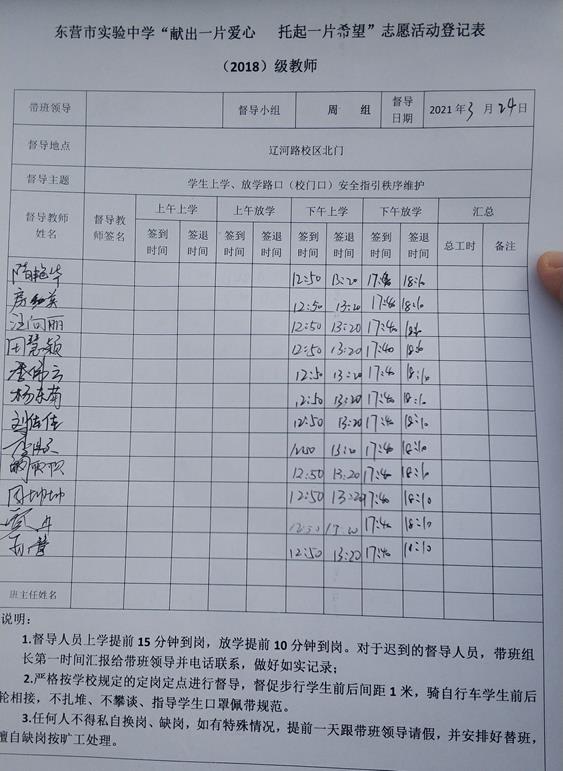 东营市实验中学“献出一片爱心 托起一片希望”志愿活动登记表
（2018）级教师
带班领导 督导小组 周 组 督导日期 2021年3月24日
督导地点 辽河路校区北门
督导主题 学生上学、放学路口（校门口）安全指引秩序维护
督导教师姓名 督导教师签名 上午上学 上午放学 下午上学 下午放学 汇总
签到时间 签退时间 签到时间 签退时间 签到时间 签退时间 签到时间 签退时间 总工时 备注
隋艳华 12:50 13:20 17:40 18:10
12:50 13:20 17:40 18:10
汪向丽 12:50 13:20 17:40
田慧颖 12:50 13:20 17:40
12:50 13:20 17:40 18:10
杨东菊 12:50 13:20 17:40 18:10
刘佳佳 12:50 13:20 17:40 18:10
12:50 13:20 17:40 18:10
12:50 13:20 17:40 18:10
周坤坤 12:50 13:20 17:40 18:10
17:40 18:10
12:50 13:20 17:40 18:10
班主任姓名
说明：
1.督导人员上学提前15分钟到岗，放学提前10分钟到岗。对于迟到的督导人员，带班组
长第一时间汇报给带班领导并电话联系，做好如实记录；
2.严格按学校规定的定岗定点进行督导，督促步行学生前后间距1米，骑自行车学生前后
轮相接，不扎堆、不攀谈、指导学生口罩佩带规范。
3.任何人不得私自换岗、缺岗，如有特殊情况，提前一天跟带班领导请假，并安排好替班，
擅自缺岗按旷工处理。